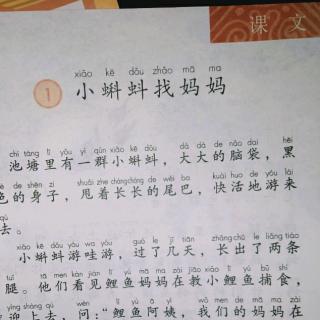 课 文
xiǎo kē dǒu zhǎo mā ma
1 小蝌蚪找妈妈
chí táng lǐ yǒu yì qún xiǎo kē dǒu dà dà de nǎo dai hēi
池塘里有一群小蝌蚪，大大的脑袋，黑
sè de shēn zi shuǎi zhe cháng cháng de wěi ba kuài huo de yóu lái
色的身子，甩着长长的尾巴，快活地游来
qù
去。
xiǎo kē dǒu yóu wa yóu guò le jǐ tiān zhǎng chū le liǎng tiáo
小蝌蚪游哇游，过了几天，长出了两条
tuǐ tā men kàn jiàn lǐ yú mā ma zài jiāo xiǎo lǐ yú bǔ shí
腿。他们看见鲤鱼妈妈在教小鲤鱼捕食，
yíng shàng qù wèn lǐ yú ā yí wǒ men de mā ma zài
迎上去，问：“鲤鱼阿姨，我们的妈妈在